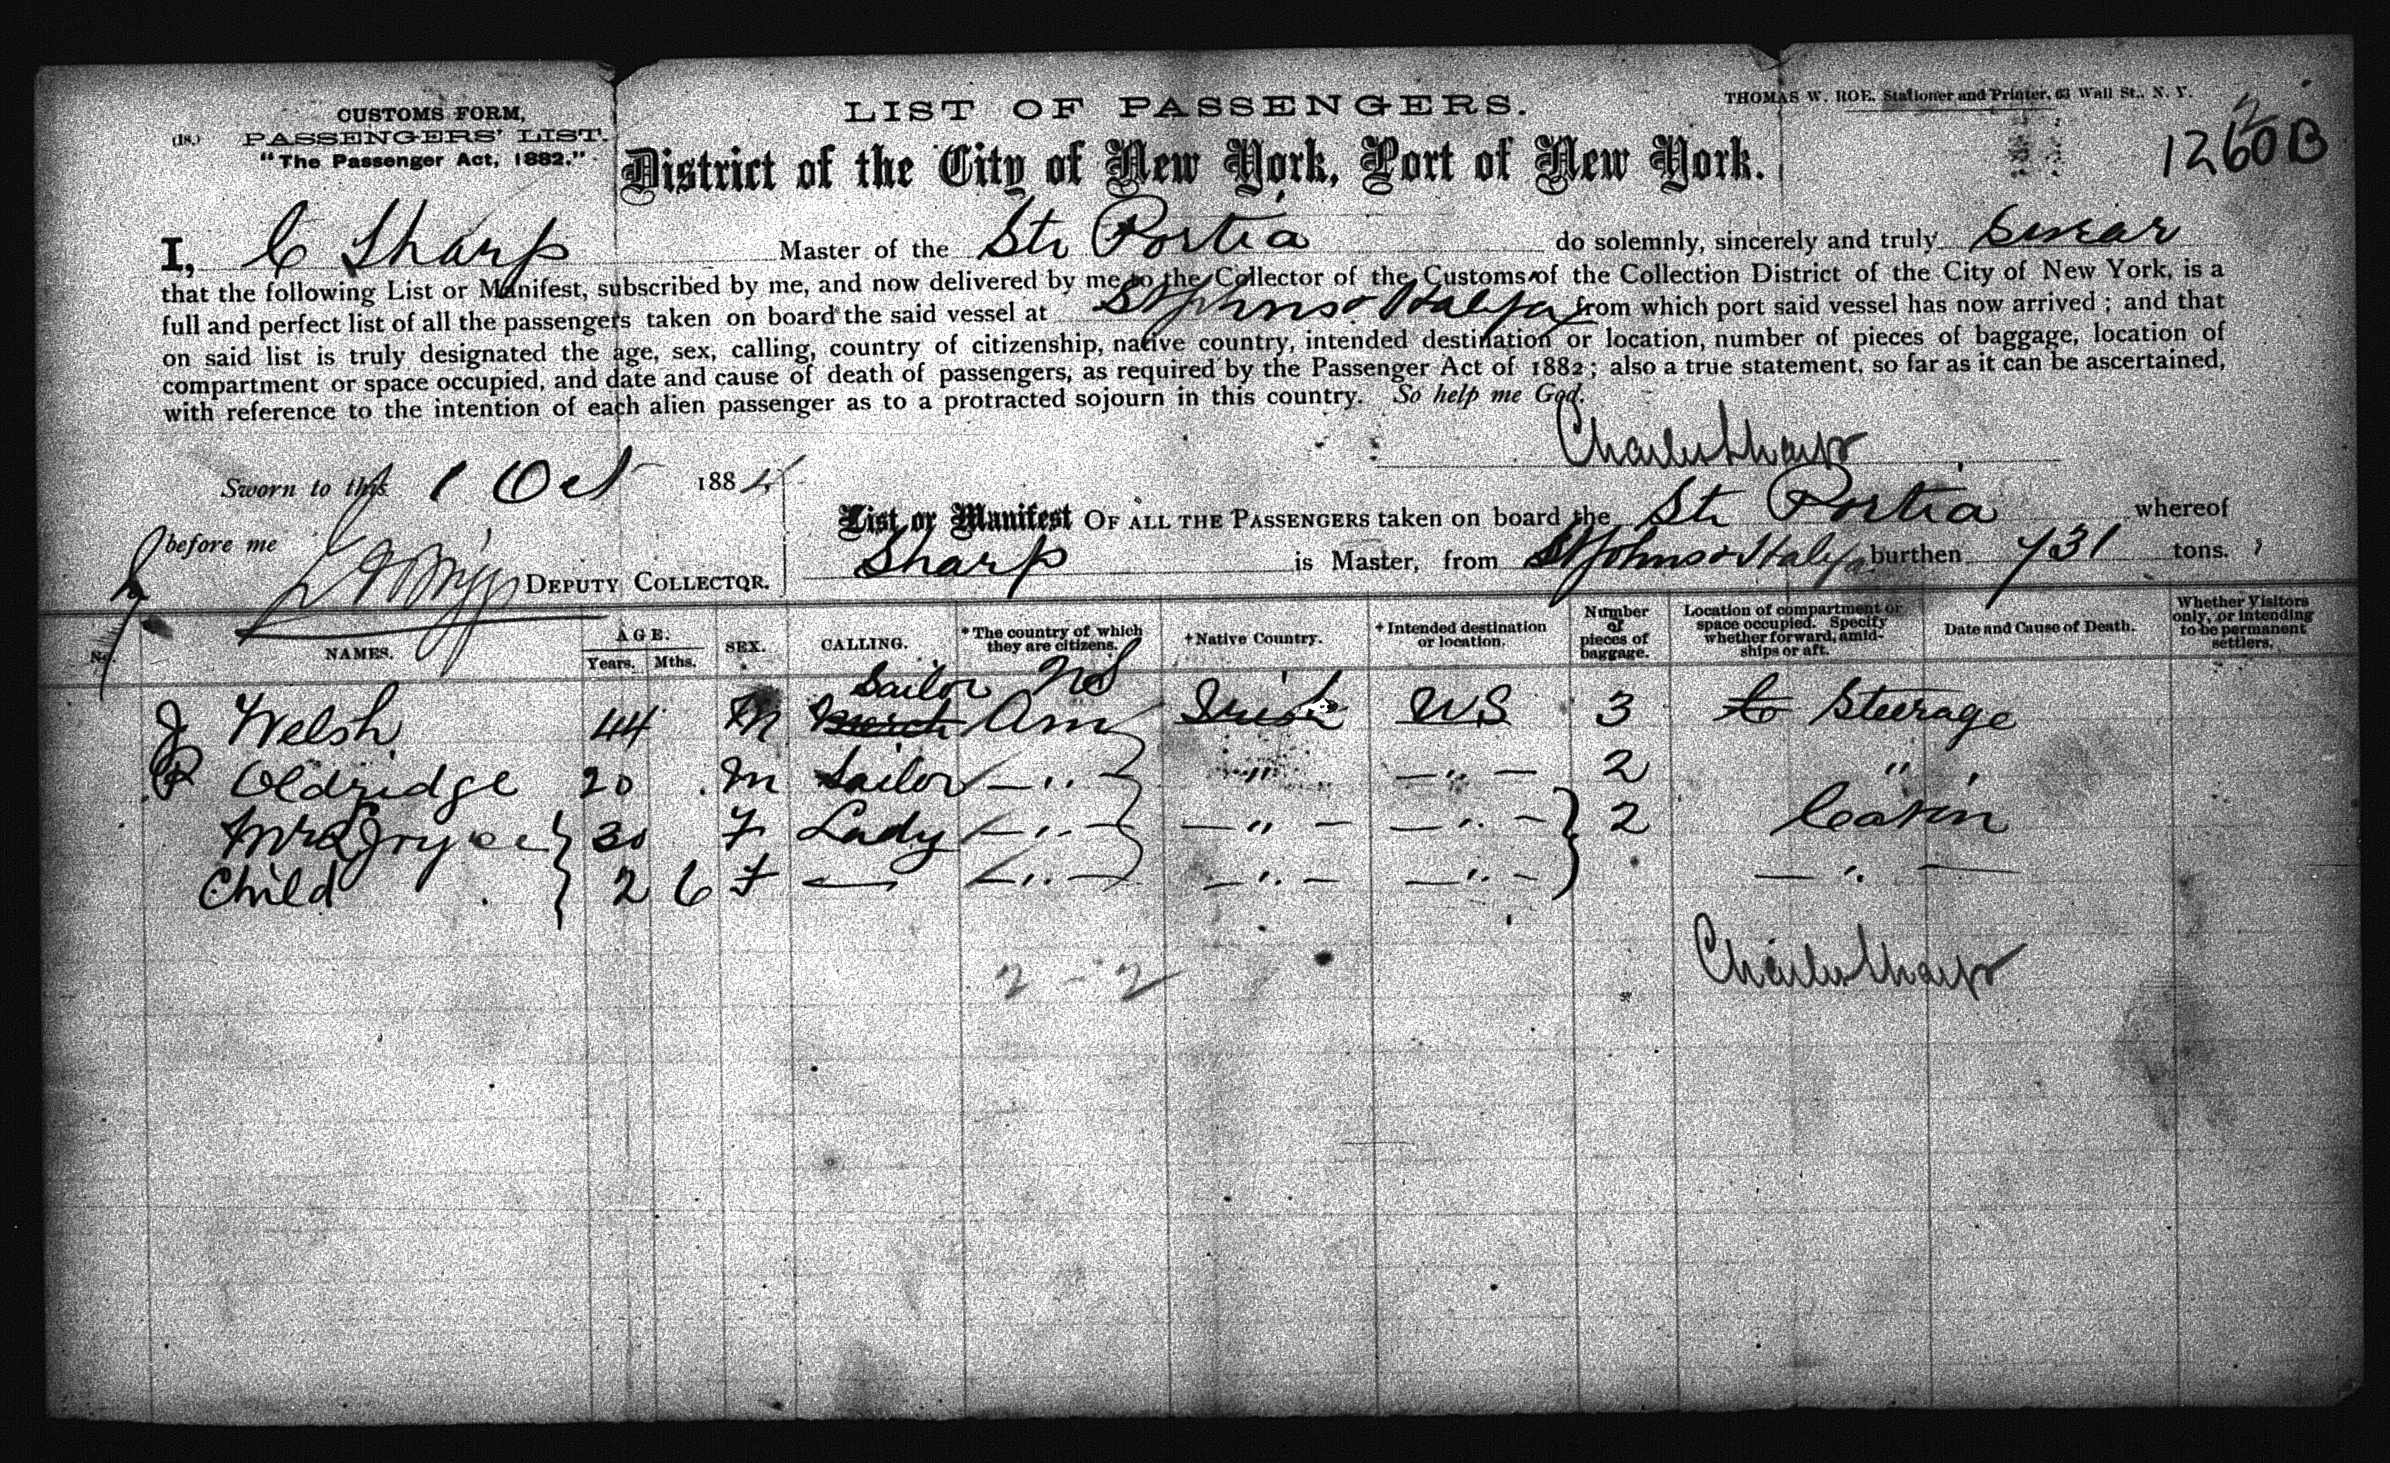 CUSTOMS FORM,
(18.) PASSENGERS' LIST.
"The Passenger Act, 1882."
LIST OF PASSENGERS.
THOMAS W. ROE, Stationer and Printer, 63 Wall St., N. Y.
1260B
2
District of the City of New York, Port of New York.
I, C Sharp Master of the Str Portia do solemnly, sincerely and truly swear
that the following List or Manifest, subscribed by me, and now delivered by me to the Collector of the Customs of the Collection District of the City of New York, is a
full and perfect list of all the passengers taken on board the said vessel at St Johns & Halifax from which port said vessel has now arrived; and that
on said list is truly designated the age, sex, calling, country of citizenship, native country, intended destination or location, number of pieces of baggage, location of
compartment or space occupied, and date and cause of death of passengers, as required by the Passenger Act of 1882; also a true statement, so far as it can be ascertained,
with reference to the intention of each alien passenger as to a protracted sojourn in this country. So help me God.
Charles Sharp
Sworn to this 1 Oct 1884
before me DEPUTY COLLECTOR.
List or Manifest OF ALL THE PASSENGERS taken on board the Str Portia whereof
Sharp is Master, from St Johns & Halifax burthen 731 tons.
No. NAMES. AGE. Years. Mths. SEX. CALLING. * The country of which they are citizens. + Native Country. + Intended destination or location. Number of pieces of baggage. Location of compartment or space occupied. Specify whether forward, amidships or aft. Date and Cause of Death. Whether Visitors only, or intending to be permanent settlers.
Sailor
J Welsh 44 M Am Irish US 3 Steerage
P Oldridge 20 M Sailor — " — " — " — 2 "
Mrs 30 F Lady — " — — " — — " — 2 Cabin
Child 2 6 F — — " — — " — — " — — " —
2 - 2
Charles Sharp